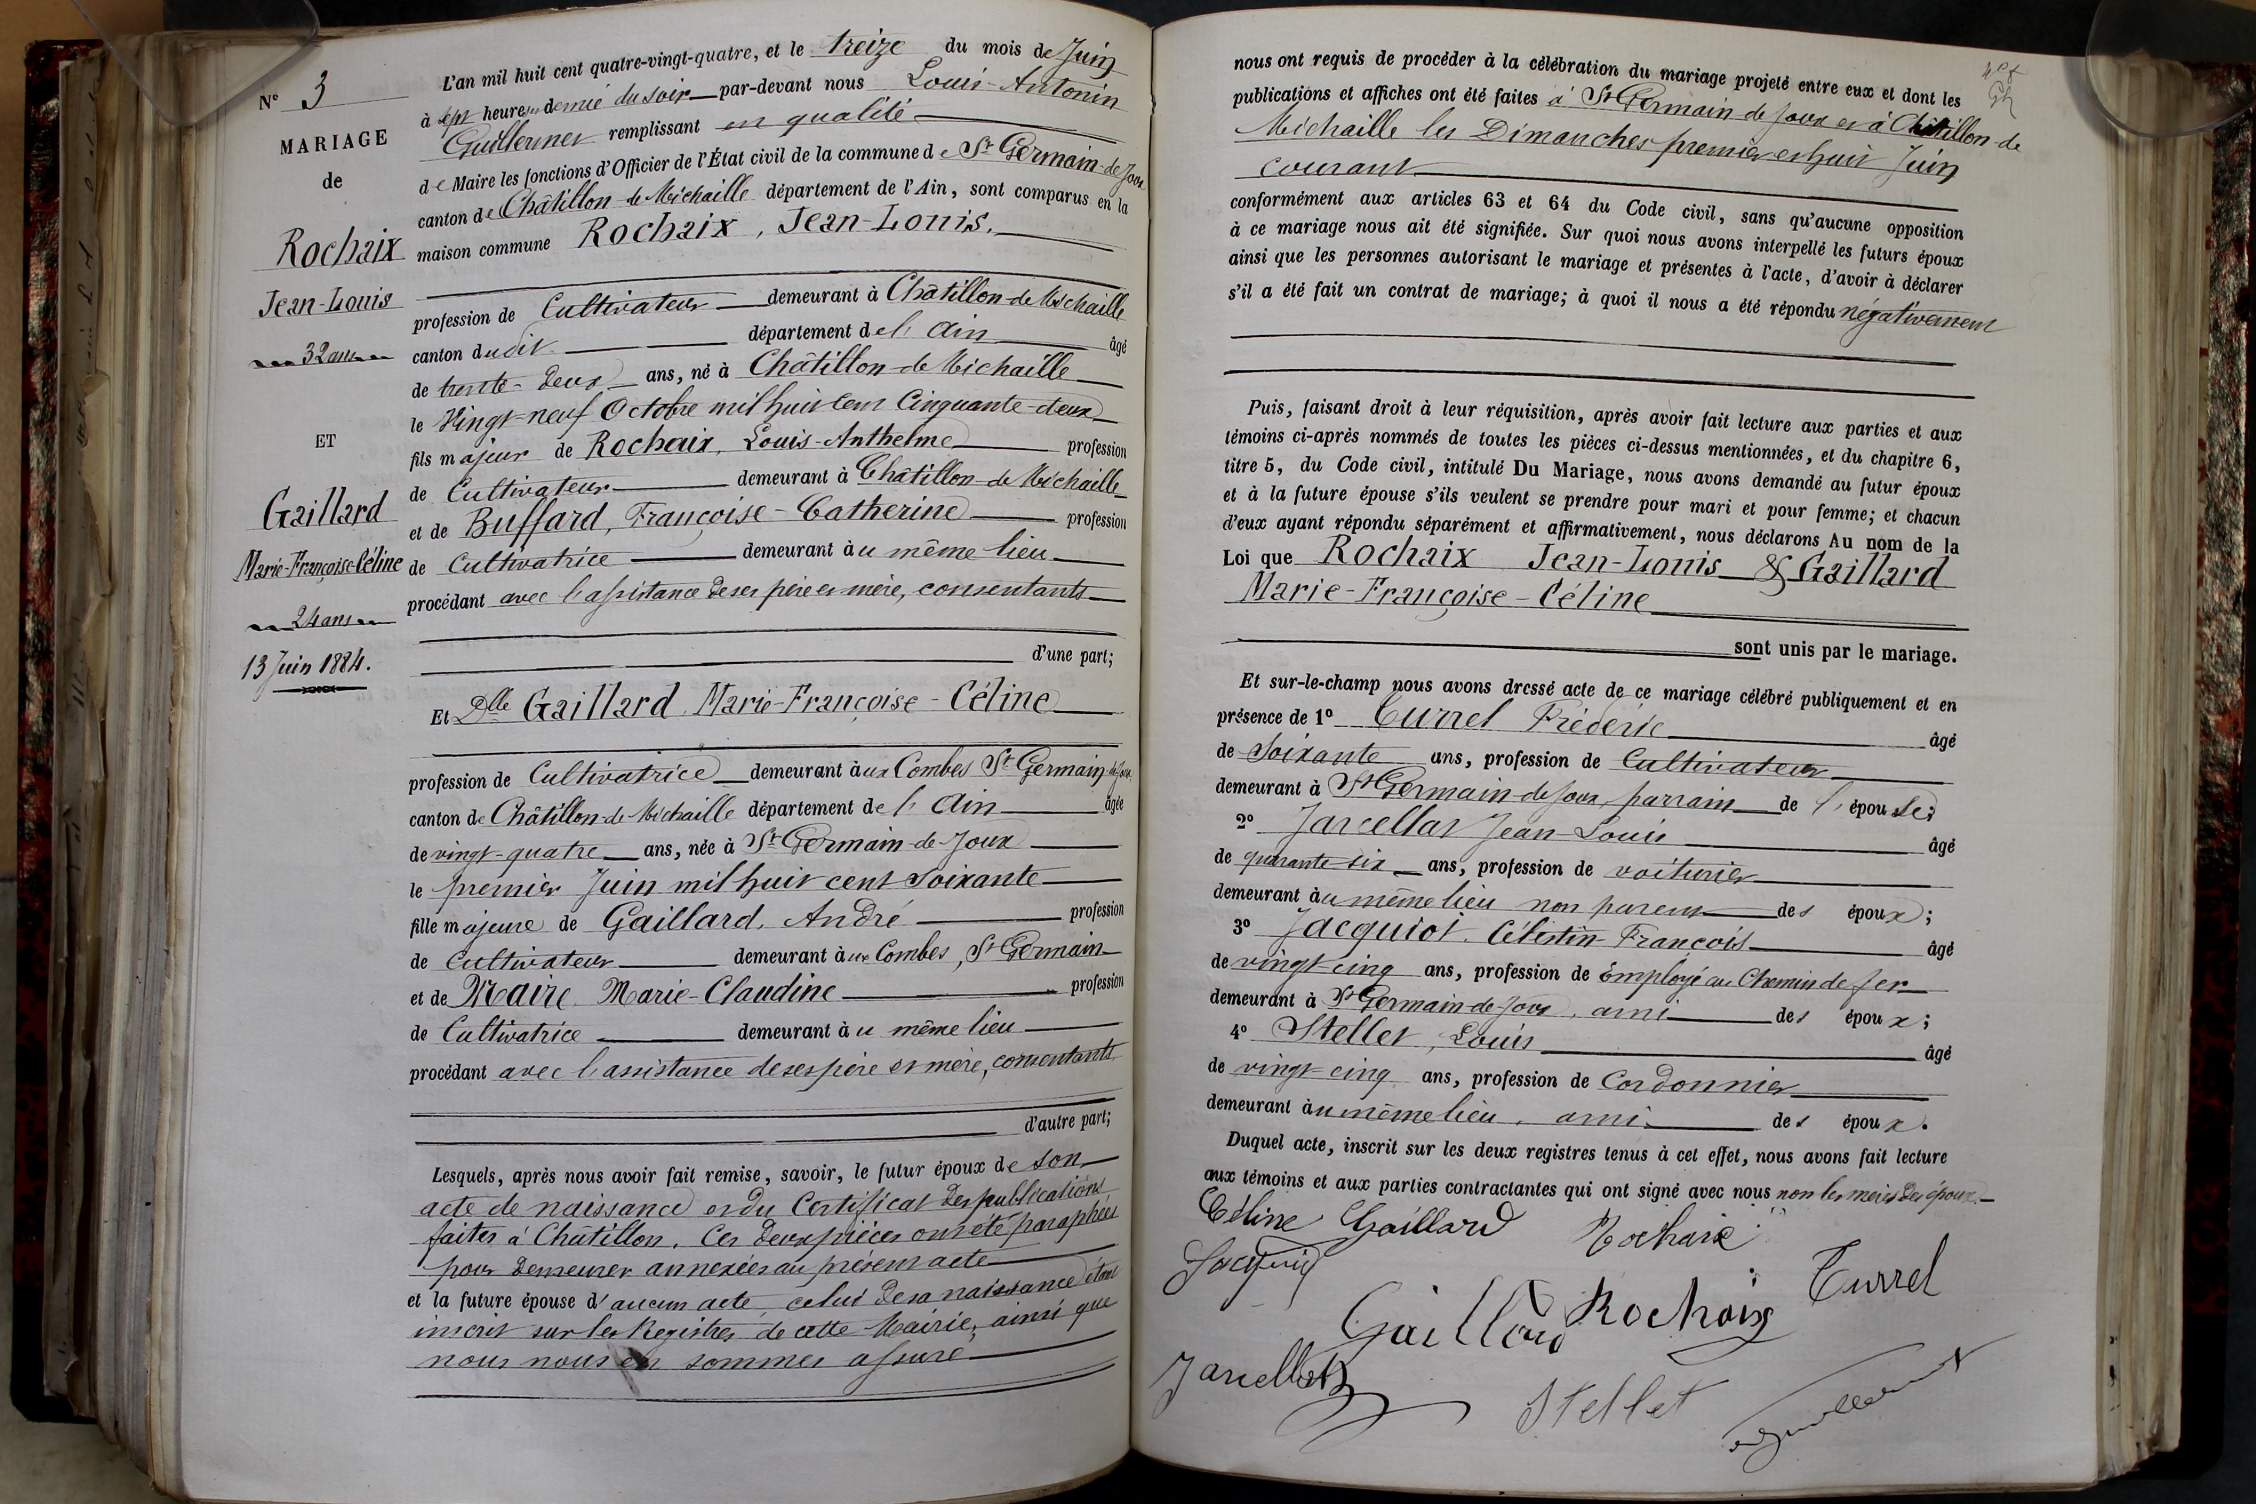 N° 3
MARIAGE
de
Rochaix
Jean-Louis
32 ans
ET
Gaillard
Marie-Françoise-Céline
24 ans
13 Juin 1884.
L'an mil huit cent quatre-vingt-quatre, et le treize du mois de Juin
à sept heures et demie du soir par-devant nous Louis-Antonin
Guillermet remplissant en qualité
de Maire les fonctions d'Officier de l'État civil de la commune de St Germain-de-Joux
canton de Châtillon-de-Michaille département de l'Ain, sont comparus en la
maison commune Rochaix, Jean-Louis,
profession de Cultivateur demeurant à Châtillon-de-Michaille
canton dudit département de l'Ain âgé
de trente-deux ans, né à Châtillon-de-Michaille
le Vingt-neuf Octobre mil huit cent Cinquante-deux
fils majeur de Rochaix, Louis-Anthelme profession
de Cultivateur demeurant à Châtillon-de-Michaille
et de Buffard, Françoise-Catherine profession
de Cultivatrice demeurant au même lieu
procédant avec l'assistance de ses père et mère, consentants
d'une part;
Et Dlle Gaillard Marie-Françoise-Céline
profession de Cultivatrice demeurant aux Combes St Germain-de-Joux
canton de Châtillon-de-Michaille département de l'Ain âgée
de vingt-quatre ans, née à St Germain-de-Joux
le premier Juin mil huit cent Soixante
fille majeure de Gaillard, André profession
de Cultivateur demeurant aux Combes, St Germain
et de Maire Marie-Claudine profession
de Cultivatrice demeurant au même lieu
procédant avec l'assistance de ses père et mère, consentants
d'autre part;
Lesquels, après nous avoir fait remise, savoir, le futur époux de son
acte de naissance et du Certificat des publications
faites à Châtillon. Ces deux pièces ont été paraphées
pour demeurer annexées au présent acte
et la future épouse d'aucun acte, celui de sa naissance étant
inscrit sur les Registres de cette Mairie, ainsi que
nous nous en sommes assuré
nous ont requis de procéder à la célébration du mariage projeté entre eux et dont les
publications et affiches ont été faites à St Germain de Joux et à Châtillon-de
Michaille les Dimanches premier et huit Juin
courant
conformément aux articles 63 et 64 du Code civil, sans qu'aucune opposition
à ce mariage nous ait été signifiée. Sur quoi nous avons interpellé les futurs époux
ainsi que les personnes autorisant le mariage et présentes à l'acte, d'avoir à déclarer
s'il a été fait un contrat de mariage; à quoi il nous a été répondu négativement
Puis, faisant droit à leur réquisition, après avoir fait lecture aux parties et aux
témoins ci-après nommés de toutes les pièces ci-dessus mentionnées, et du chapitre 6,
titre 5, du Code civil, intitulé Du Mariage, nous avons demandé au futur époux
et à la future épouse s'ils veulent se prendre pour mari et pour femme; et chacun
d'eux ayant répondu séparément et affirmativement, nous déclarons Au nom de la
Loi que Rochaix Jean-Louis & Gaillard
Marie-Françoise-Céline
sont unis par le mariage.
Et sur-le-champ nous avons dressé acte de ce mariage célébré publiquement et en
présence de 1° Turrel Fréderic âgé
de Soixante ans, profession de Cultivateur
demeurant à St Germain-de-Joux, parrain de l'épouse;
2° Jarcellat Jean-Louis âgé
de quarante-six ans, profession de voiturier
demeurant au même lieu non parent des époux;
3° Jacquiot, Célestin-François âgé
de vingt-cinq ans, profession de Employé au Chemin de fer
demeurant à St Germain-de-Joux, ami des époux;
4° Stellet, Louis âgé
de vingt-cinq ans, profession de Cordonnier
demeurant au même lieu, ami des époux.
Duquel acte, inscrit sur les deux registres tenus à cet effet, nous avons fait lecture
aux témoins et aux parties contractantes qui ont signé avec nous non les mères des époux.
Céline Gaillard Rochaix
Turrel
Gaillard Rochaix
Stellet